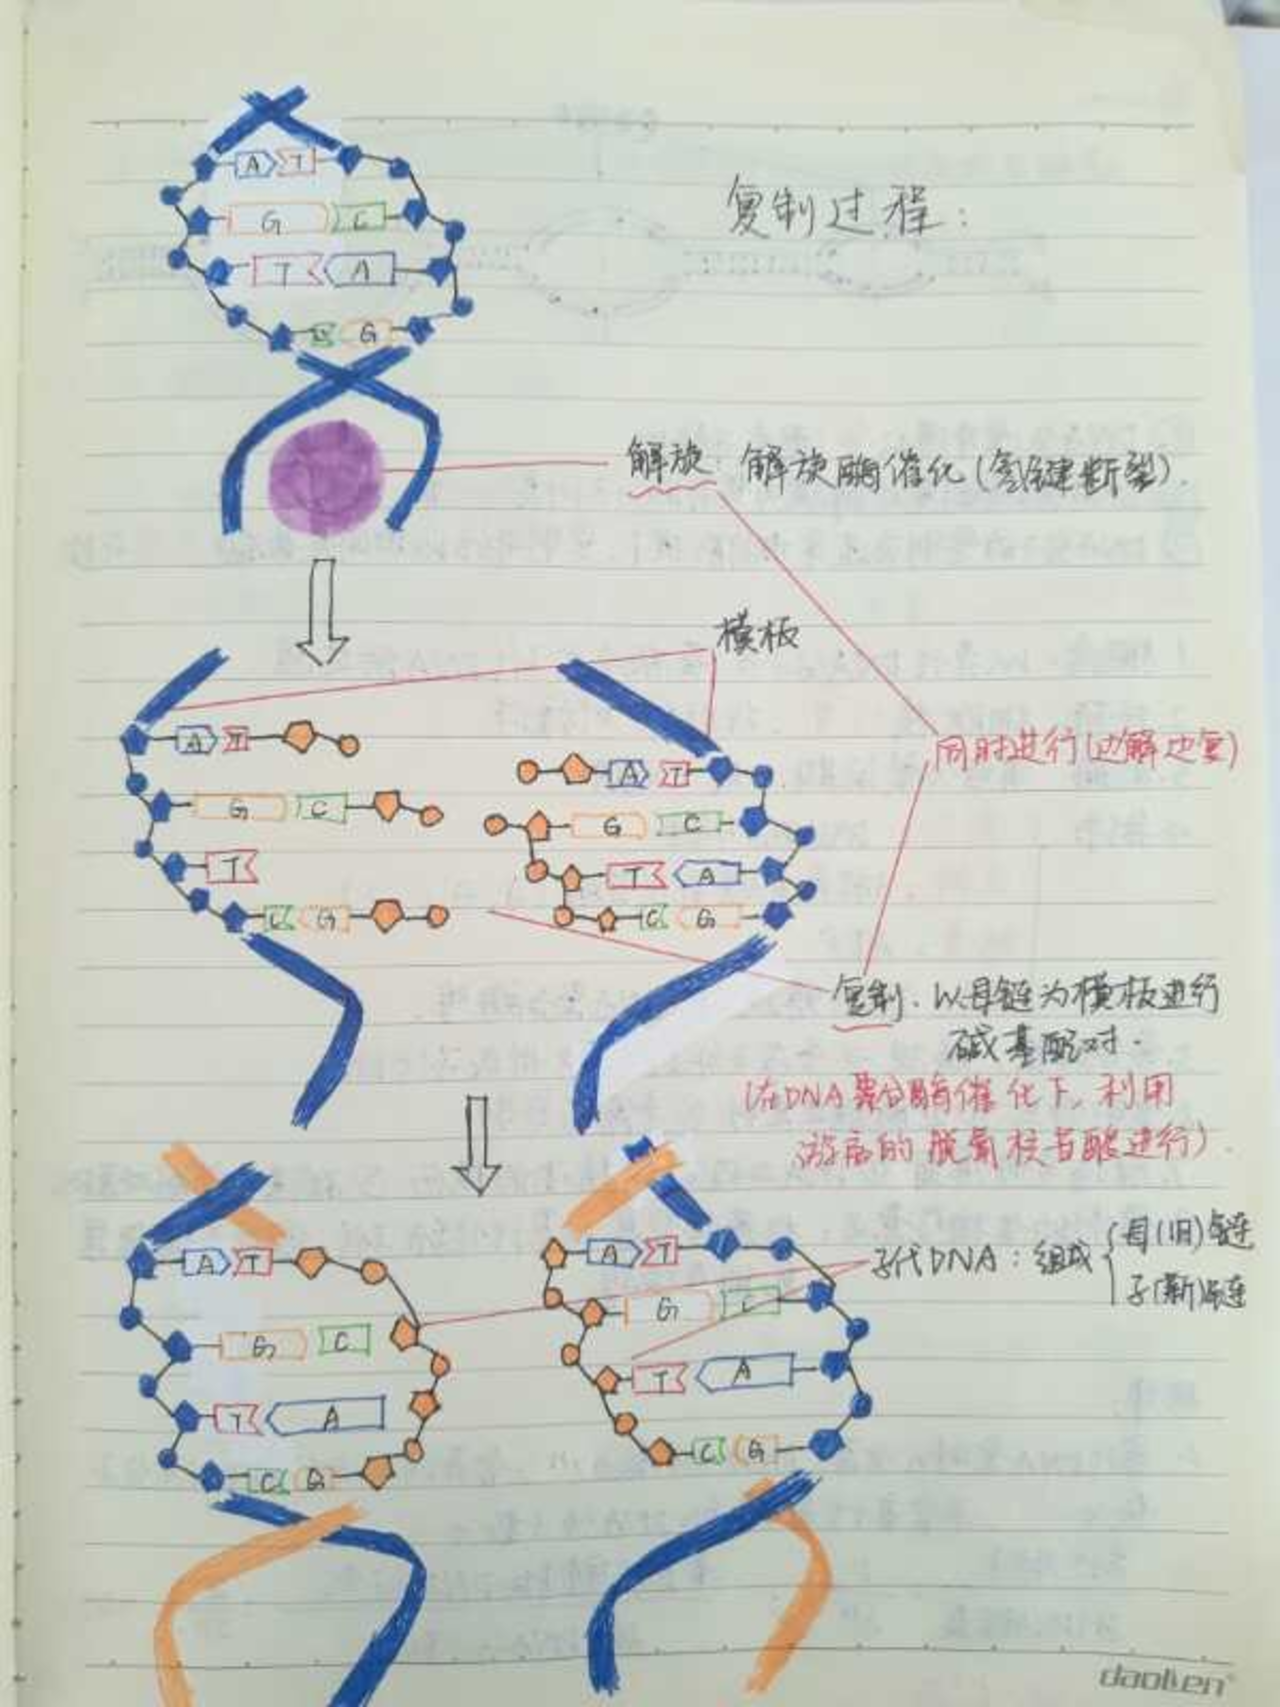 复制过程：
A T
G C
T A
C G
解旋：解旋酶催化(氢键断裂).
模板
A T
G C
T
C G
A T
G C
T A
C G
同时进行(边解边复)
复制：以母链为模板进行
碱基配对.
(在DNA聚合酶催化下,利用
游离的脱氧核苷酸进行).
A T
G C
T A
C G
A T
G C
T A
C G
子代DNA：组成
母(旧)链
子(新)链
daolien